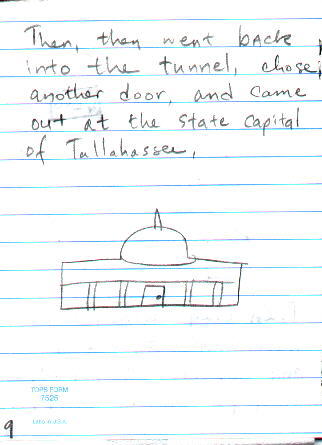 Then, they went back
into the tunnel, chose
another door, and came
out at the State Capital
of Tallahassee,
TOPS FORM
7526
Litho in U.S.A.
9